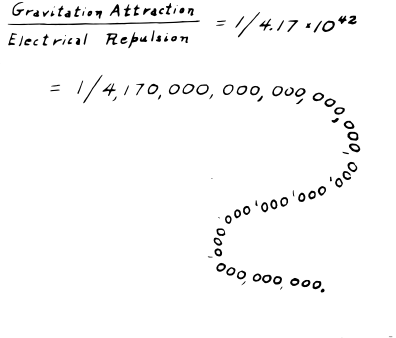 Gravitation Attraction
Electrical Repulsion
= 1/4.17 × 10⁴²
= 1/4,170,000,000,000,000,000,000,000,000,000,000,000,000,000,000.